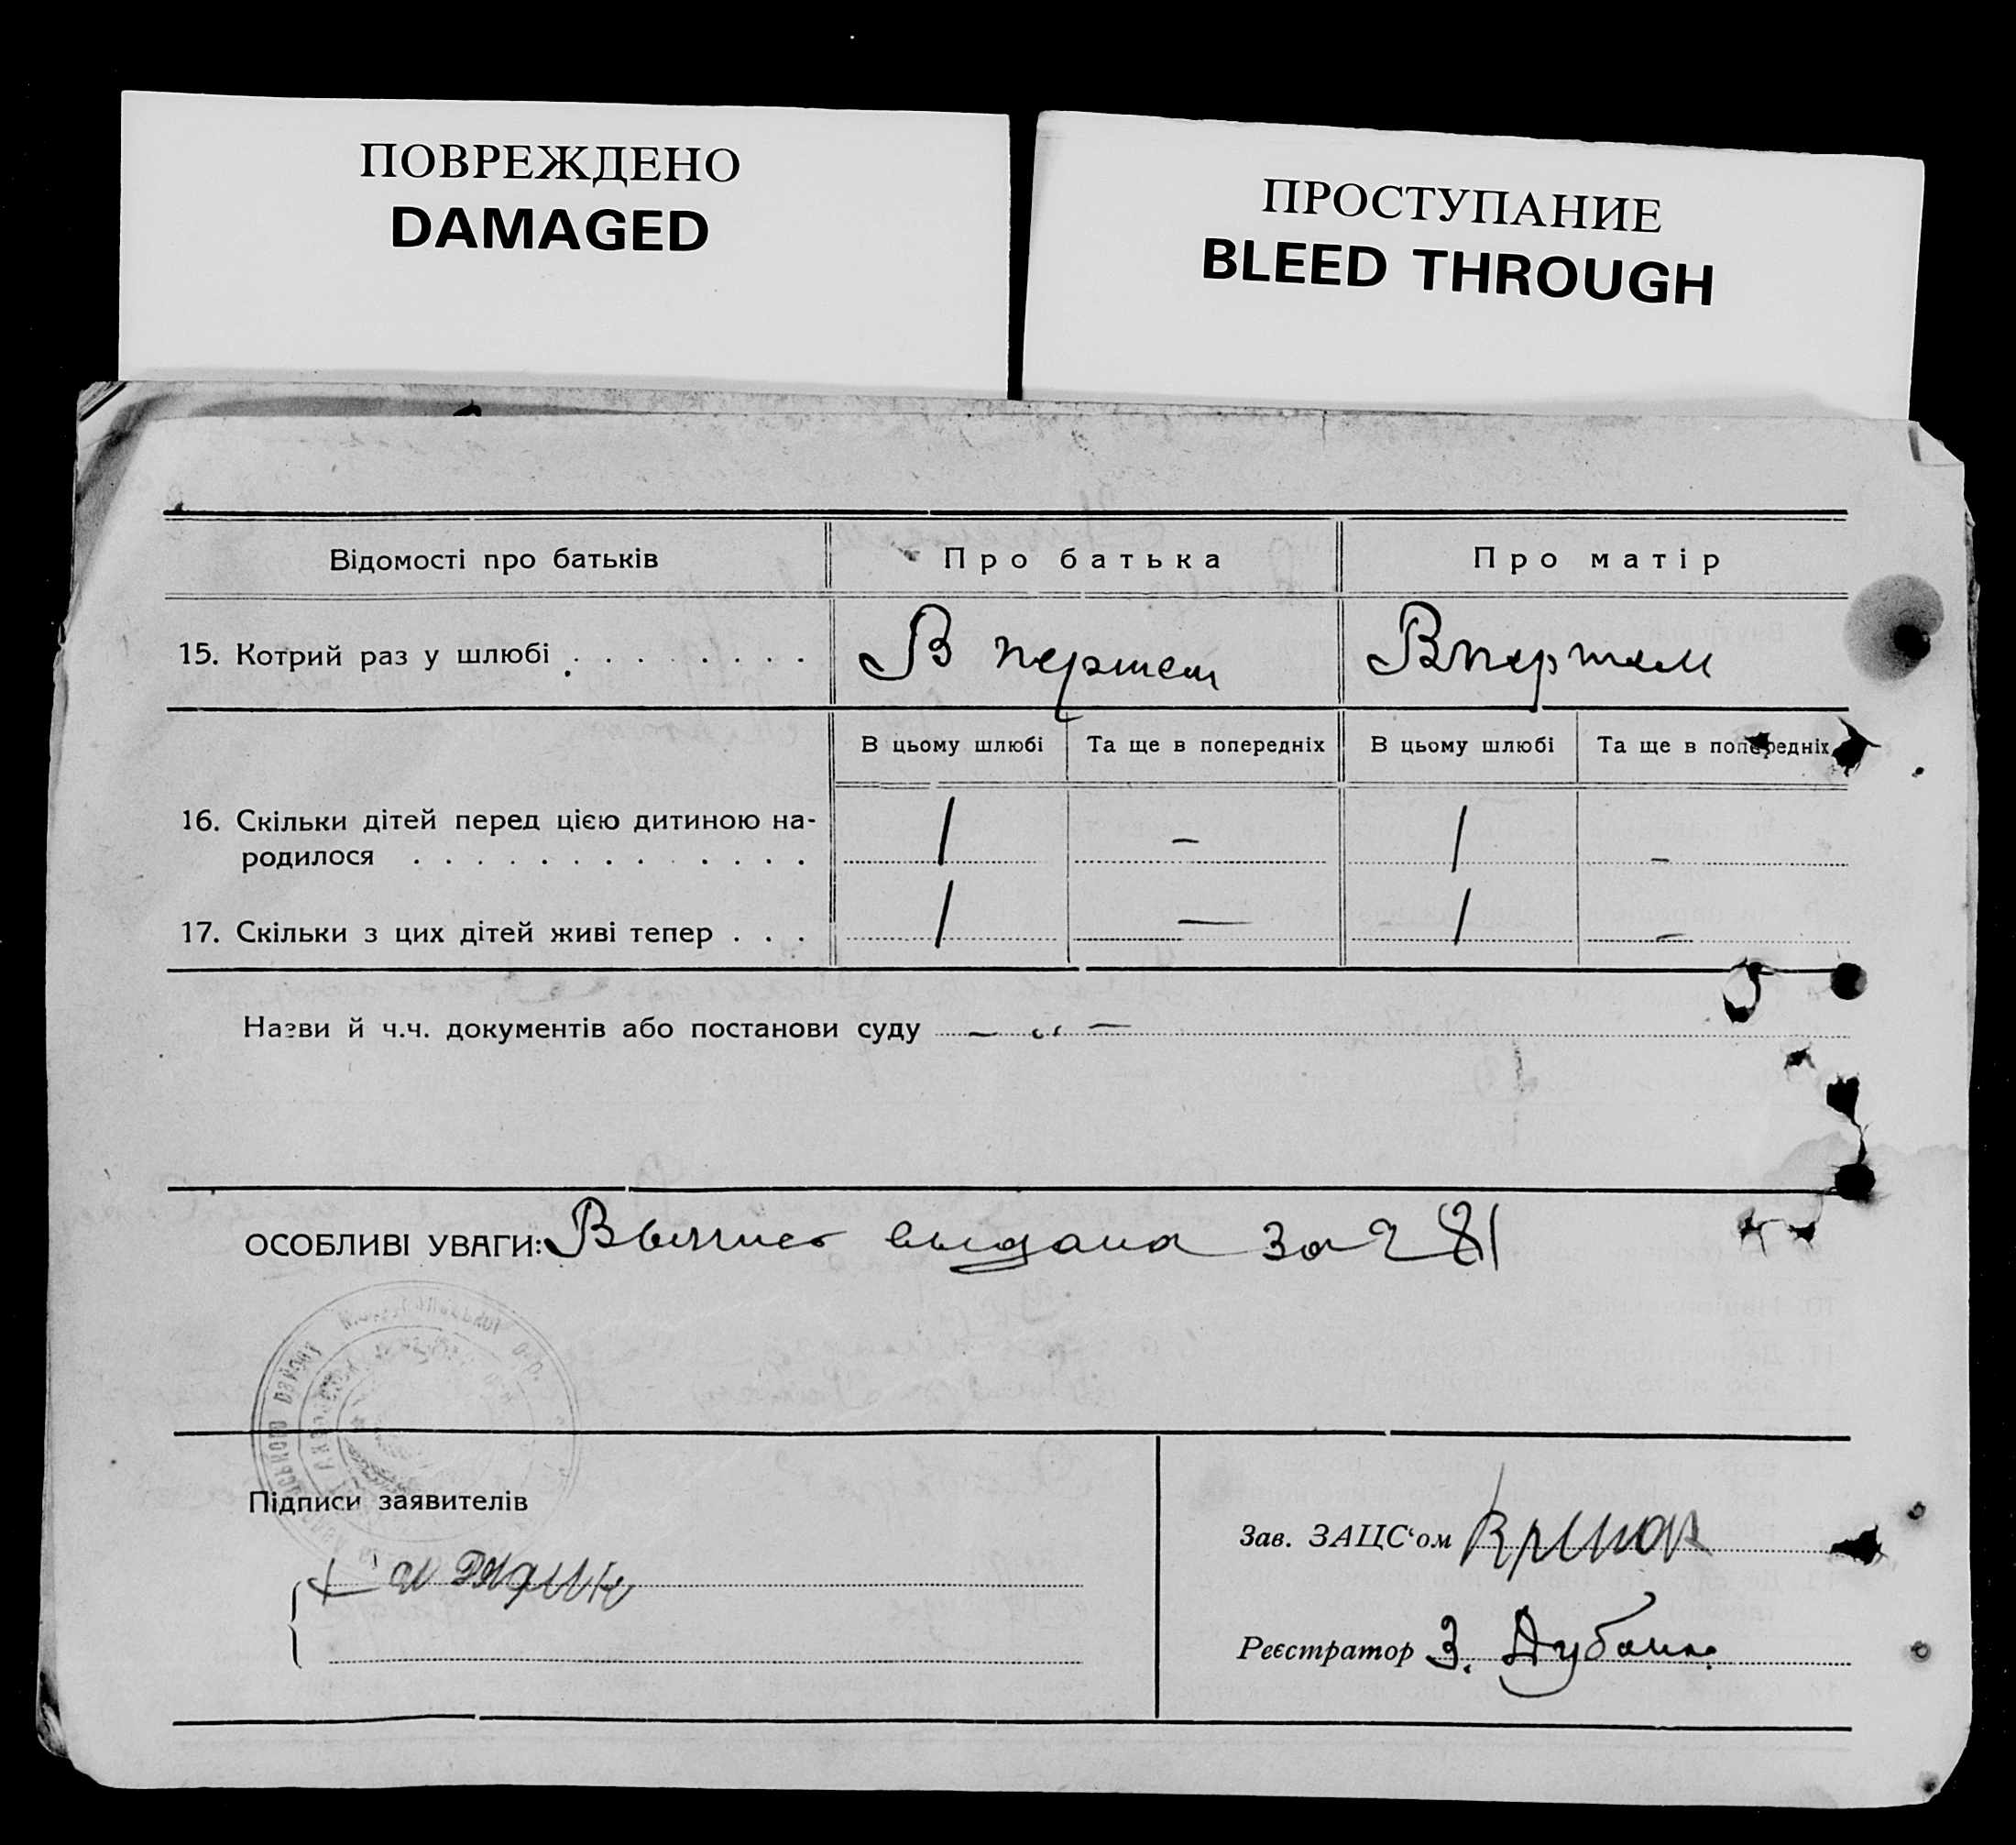 ПОВРЕЖДЕНО
DAMAGED
ПРОСТУПАНИЕ
BLEED THROUGH
Відомості про батьків Про батька Про матір
15. Котрий раз у шлюбі . . . . . . . . В першем Впершем
В цьому шлюбі Та ще в попередніх В цьому шлюбі Та ще в попередніх
16. Скільки дітей перед цією дитиною на-
родилося . . . . . . . . . . . . . 1 – 1 –
17. Скільки з цих дітей живі тепер . . . 1 — 1 –
Назви й ч.ч. документів або постанови суду — „ —
ОСОБЛИВІ УВАГИ: выдана за 281
Підписи заявителів
Зав. ЗАЦС‘ом
Реєстратор З.